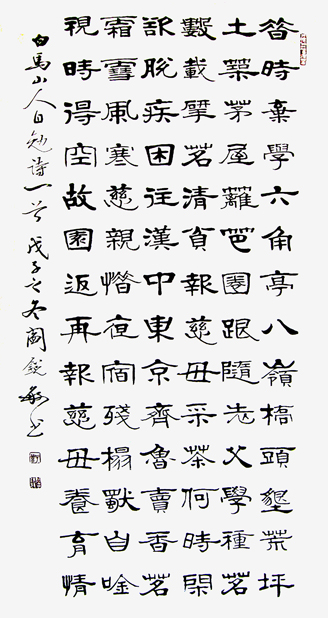 昔時棄學六角亭八嶺橋頭墾荒坪
土築茅屋籬笆圍跟隨老父學種茗
數載擎茗清貧報慈母采茶何時閑
脫疾困往漢中東京齊魯賣香茗
霜雪風寒慈親憯夜宿殘榻獸自唫
視時得空故園返再報慈母養育情
白馬山人自勉詩一首 戊子之冬閻銳敏书